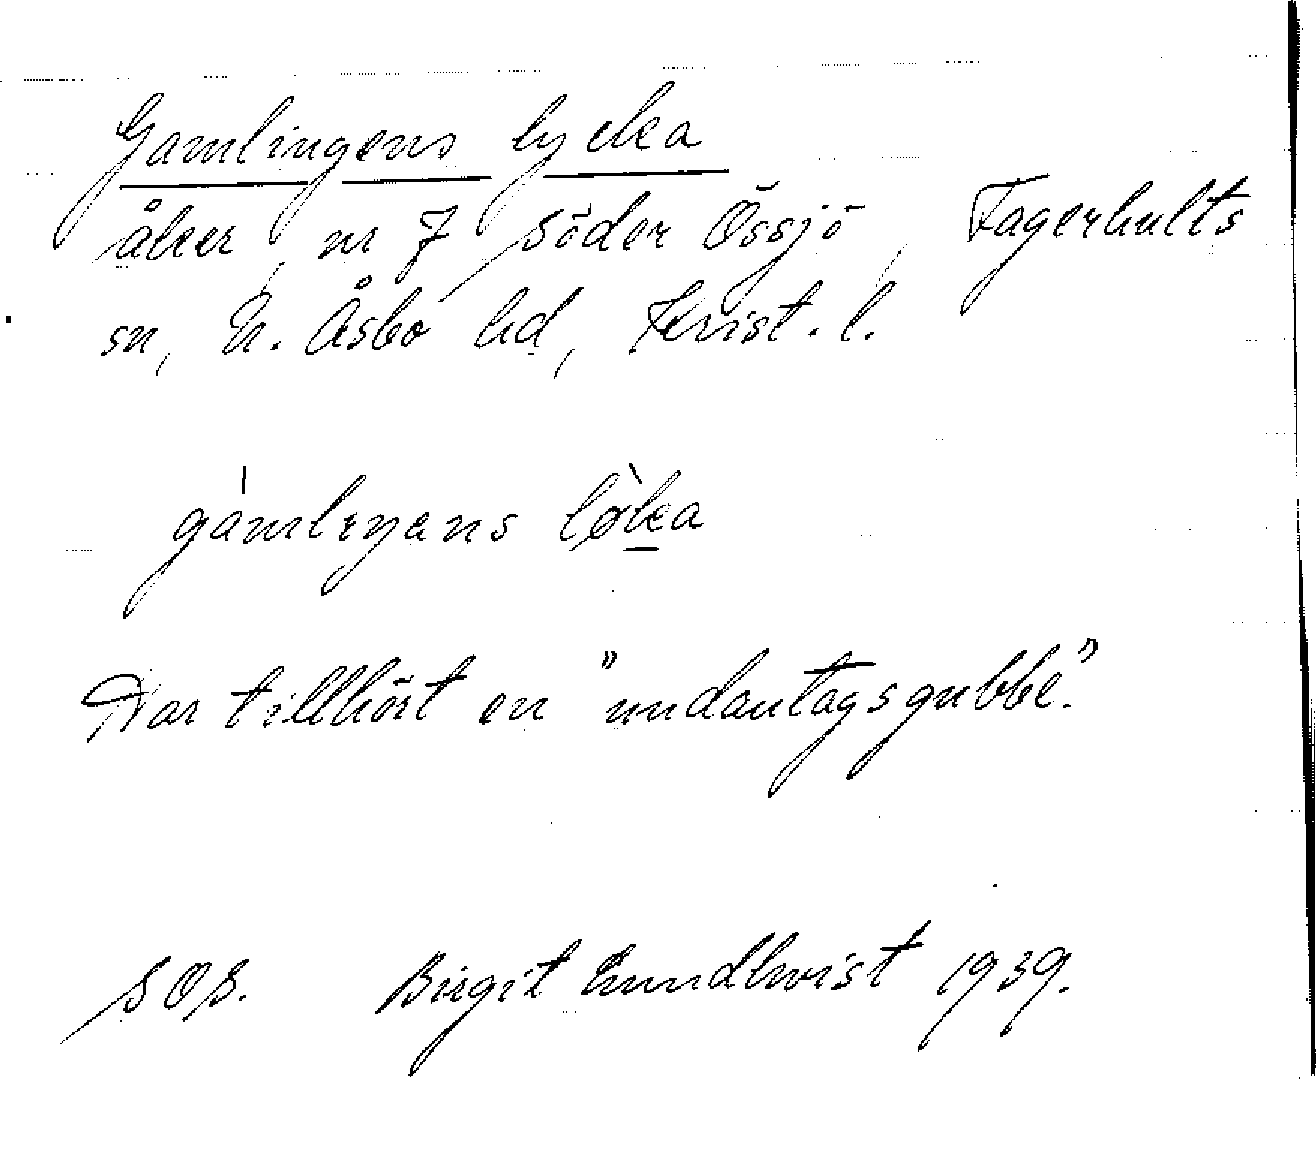 Gamlingens lycka
åker, nr 7 Söder Össjö, Fagerhults
sn, N. Åsbo hd, Krist. l.
gámlıŋans lø̀ka
Har tillhört en "undantagsgubbe".
Birgit Lundkvist 1939.